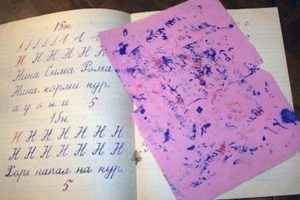 15н.
Н Н Н Н Н Н
Нина Сима Рома
Нина корми кур.
а у о ы м 5
13н
Н Н Н Н Н Н
Н Н Н Н Н Н
Хорь напал на кур.
5